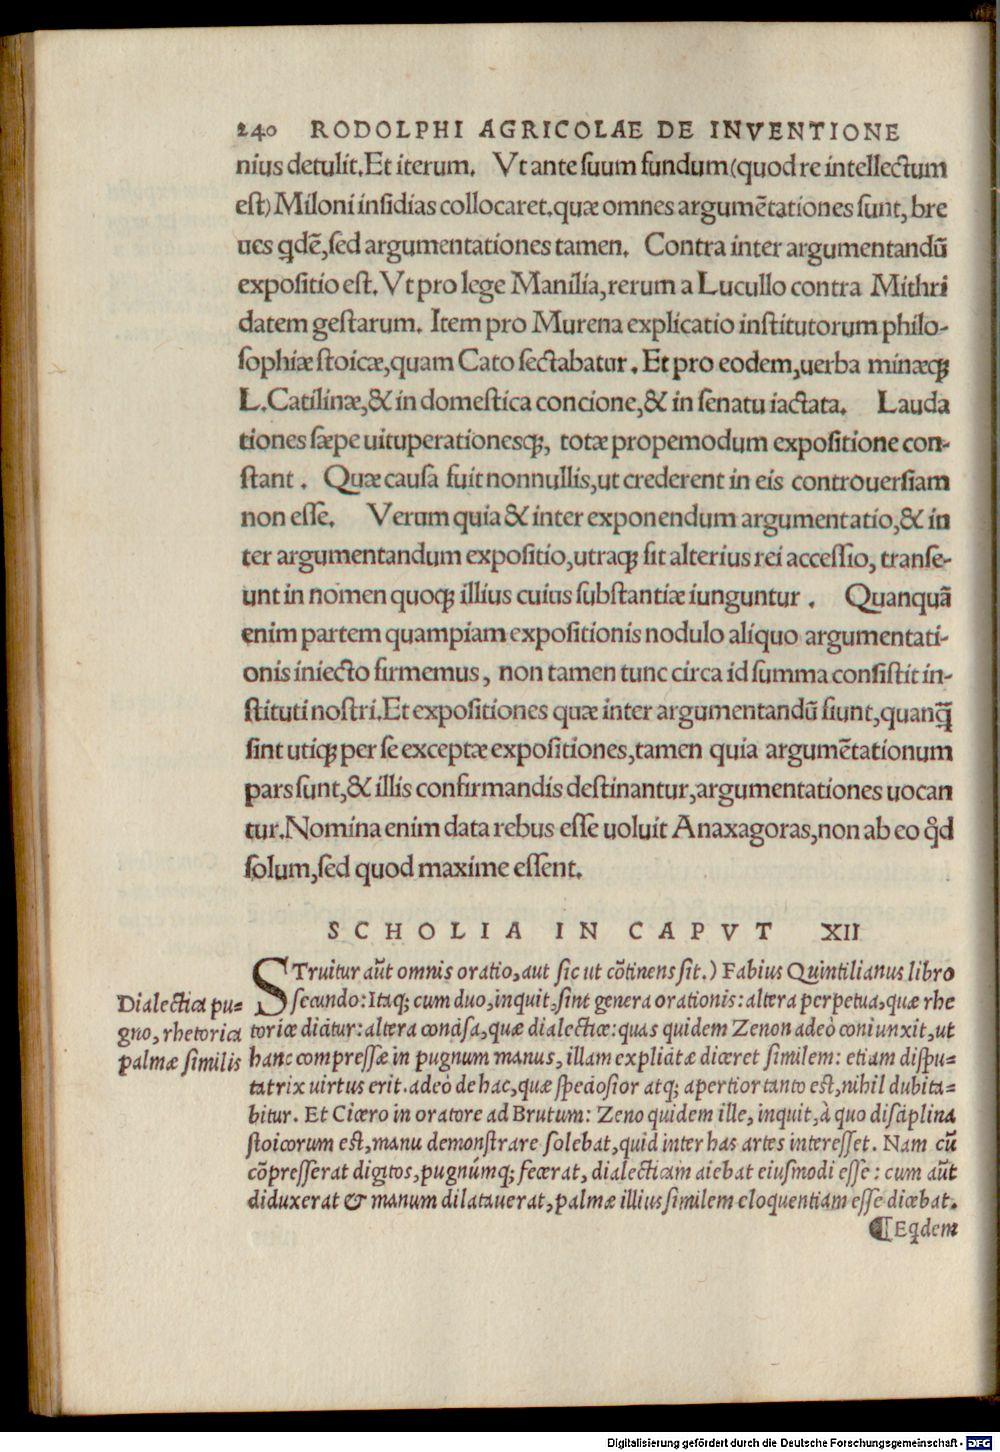 240 RODOLPHI AGRICOLAE DE INVENTIONE
nius detulit. Et iterum. Vt ante suum fundum (quod re intellectum
est) Miloni insidias collocaret. quæ omnes argumẽtationes sunt, bre
ues qdẽ, sed argumentationes tamen. Contra inter argumentandũ
expositio est. Vt pro lege Manilia, rerum a Lucullo contra Mithri
datem gestarum. Item pro Murena explicatio institutorum philo-
sophiæ stoicæ, quam Cato sectabatur. Et pro eodem, uerba minæq;
L. Catilinæ, & in domestica concione, & in senatu iactata. Lauda
tiones sæpe uituperationesq;, totæ propemodum expositione con-
stant. Quæ causa fuit nonnullis, ut crederent in eis controuersiam
non esse. Verum quia & inter exponendum argumentatio, & in
ter argumentandum expositio, utraq; sit alterius rei accessio, transe-
unt in nomen quoq; illius cuius substantiæ iunguntur. Quanquã
enim partem quampiam expositionis nodulo aliquo argumentati-
onis iniecto firmemus, non tamen tunc circa id summa consistit in-
stituti nostri. Et expositiones quæ inter argumentandũ fiunt, quanq̃
sint utiq; per se exceptæ expositiones, tamen quia argumẽtationum
pars sunt, & illis confirmandis destinantur, argumentationes uocan
tur. Nomina enim data rebus esse uoluit Anaxagoras, non ab eo qd
solum, sed quod maxime essent.
SCHOLIA IN CAPVT XII
STruitur aũt omnis oratio, aut sic ut cõtinens sit.) Fabius Quintilianus libro
secundo: Itaq; cum duo, inquit, sint genera orationis: altera perpetua, quæ rhe
toricæ dicitur: altera concisa, quæ dialecticæ: quas quidem Zenon adeò coniunxit, ut
hanc compressæ in pugnum manus, illam explicatæ diceret similem: etiam dispu-
tatrix uirtus erit. adeò de hac, quæ speciosior atq; apertior tanto est, nihil dubita-
bitur. Et Cicero in oratore ad Brutum: Zeno quidem ille, inquit, à quo disciplina
stoicorum est, manu demonstrare solebat, quid inter has artes interesset. Nam cũ
cõpresserat digitos, pugnúmq; fecerat, dialecticam aiebat eiusmodi esse: cum aũt
diduxerat & manum dilatauerat, palmæ illius similem eloquentiam esse dicebat.
¶ Eqdem
Dialectica pu-
gno, rhetorica
palmæ similis
Digitalisierung gefördert durch die Deutsche Forschungsgemeinschaft - DFG